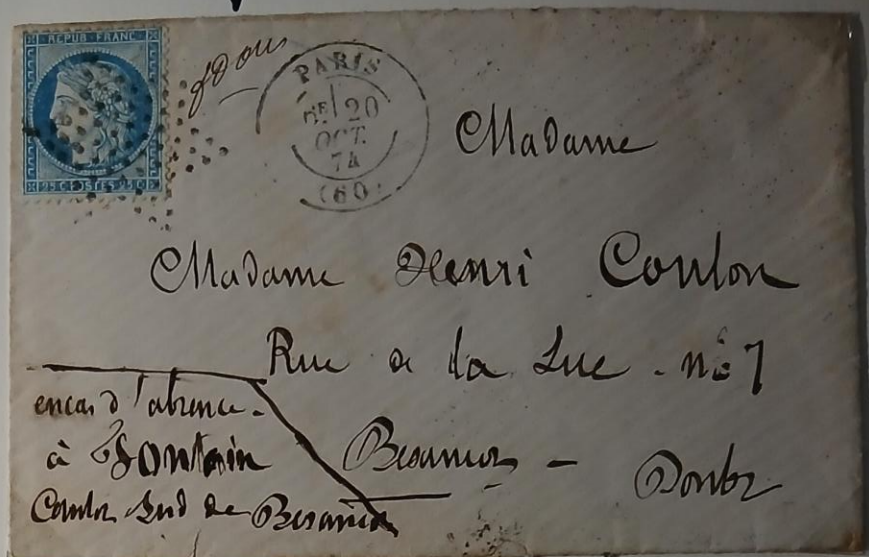 REPUB·FRANC
25 C POSTES 25 C
PARIS
2E 20
OCT.
74
(60)
Madame
Madame Henri Coulon
Rue de la Lue - no 7
Besançon - Doubs
en cas d'absence -
à Fontain
Canton Sud de Besançon